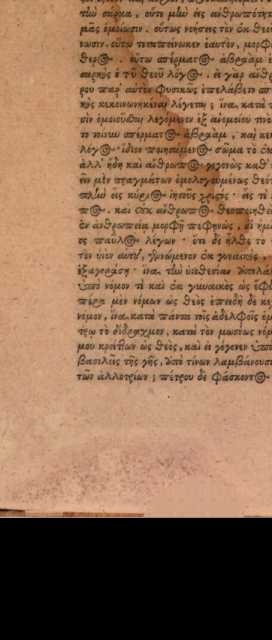 τὴν σάρκα, οὔτε μὴν εἰς ἀνθρωπότητ
μᾶς ὁμοίωσιν. οὕτως νοήσεις τὸν ἐκ θεοῦ
νωσιν. οὕτω τεταπείνωκεν ἑαυτὸν, μορφ
θερος. οὕτω σπέρματος ἀβραὰμ ἐ
σαρκὸς ὁ τοῦ θεοῦ λόγος. εἰ γὰρ ἀνθρ
ρου παρ' αὐτὸν φυσικῶς ἐπελάβετο σπ
κὸς κεκοινωνηκέναι λέγεται; ἵνα κατὰ
σιν ὁμοιοῦσθαι λεγόμενον ἐξ ἀνομοίου τινὸ
το τοίνυν σπέρματος ἀβραὰμ, καὶ κε
λόγος ἴδιον ποιησάμενος σῶμα τὸ ἐκ
ἀλλ' ἤδη καὶ ἄνθρωπος γεγονὼς καθ'
ἓν μὲν πραγμάτων ὁμολογουμένως θεότ
πλὴν εἷς κύριος ἰησοῦς χριστός. εἰς τὶ
πος. καὶ οὐκ ἄνθρωπος θεοποιηθεὶ
ἐν ἀνθρωπεία μορφῇ πεφηνώς, εἰ ἡμ
ος παῦλος λέγων· ὅτε δὲ ἦλθε τὸ
τὸν υἱὸν αὐτοῦ, γενόμενον ἐκ γυναικὸς,
ἐξαγοράσῃ· ἵνα τὴν υἱοθεσίαν ἀπολάβ
ὑπὸ νόμον τὲ καὶ ἐκ γυναικὸς ὡς ἐφ
πέρα μὲν νόμων ὡς θεὸς ἐπειδὴ δὲ κε
νόμον, ἵνα κατὰ πάντα τοῖς ἀδελφοῖς ὁμ
τρῳ τὸ δίδραχμον, κατὰ τὸν μωσέως νόμ
μου κρείττων ὡς θεὸς, καὶ εἰ γέγονεν ὑπὸ
βασιλεῖς τῆς γῆς, ἀπὸ τίνων λαμβάνουσι
τῶν ἀλλοτρίων; πέτρου δὲ φάσκοντος